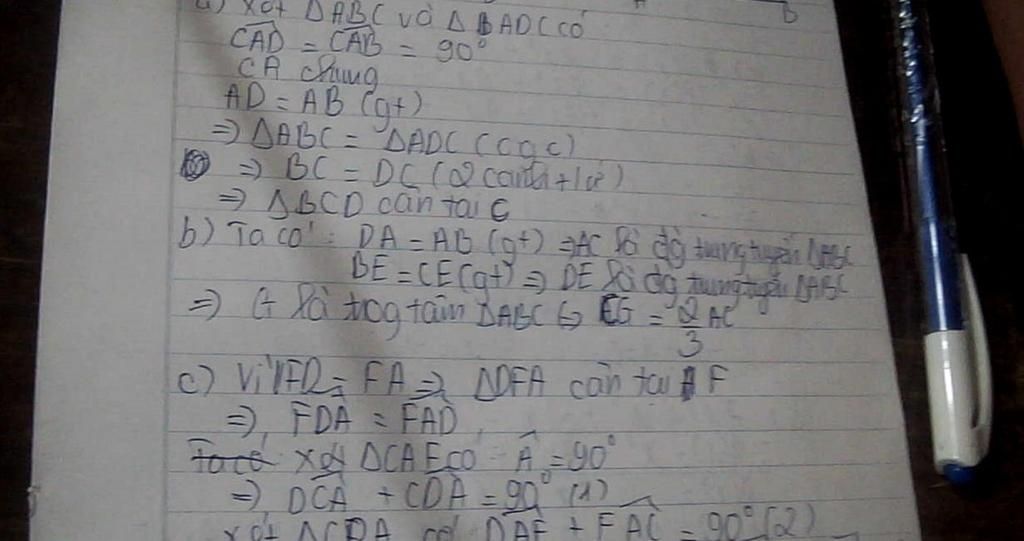 B
a) xét ΔABC và ΔADC có
CAD = CAB = 90°
CA chung
AD = AB (gt)
=> ΔABC = ΔADC (cgc)
=> BC = DC (2 cạnh t/ứ)
=> ΔBCD cân tại C
b) Ta có: DA = AB (gt) => AC là đg trung tuyến ΔABC
BE = CE (gt) => DE là đg trung tuyến ΔABC
=> G là trog tâm ΔABC => CG = 2/3 AC
c) Vì FD = FA => ΔDFA cân tại F
=> FDA = FAD
Ta có xét ΔCAE có Â = 90°
=> DCA + CDA = 90° (1)
xét ΔCDA có DAF + FAC = 90° (2)